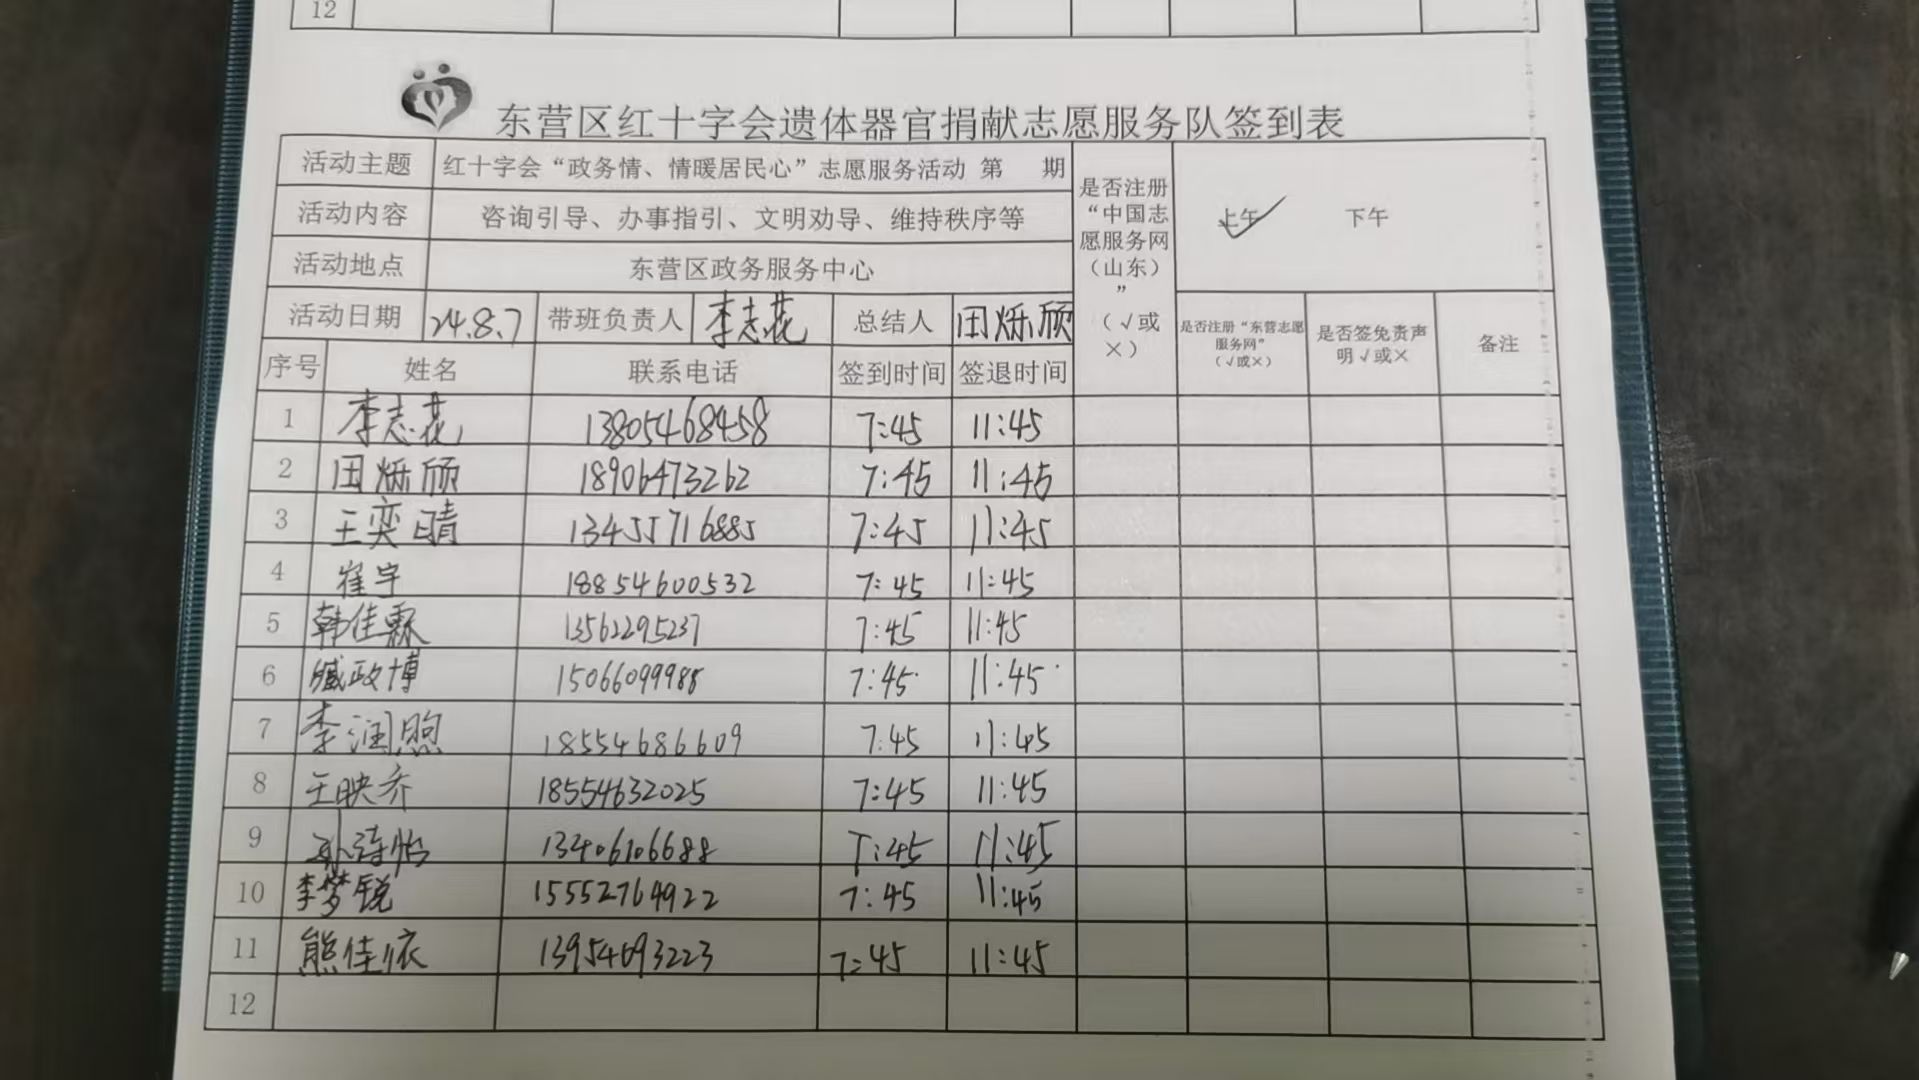 12
东营区红十字会遗体器官捐献志愿服务队签到表
活动主题 红十字会“政务情、情暖居民心”志愿服务活动 第 期
活动内容 咨询引导、办事指引、文明劝导、维持秩序等
活动地点 东营区政务服务中心
是否注册“中国志愿服务网（山东）”（√或×）
上午 下午
活动日期 24.8.7 带班负责人 李志花 总结人 田烁颀
是否注册“东营志愿服务网”（√或×） 是否签免责声明√或× 备注
序号 姓名 联系电话 签到时间 签退时间
1 李志花 13805468458 7:45 11:45
2 田烁颀 18906473262 7:45 11:45
3 王奕晴 13455716885 7:45 11:45
4 崔宇 18854600532 7:45 11:45
5 韩佳霖 13562295237 7:45 11:45
6 臧政博 15066099988 7:45 11:45
7 李润煦 18554686609 7:45 11:45
8 王映乔 18554632025 7:45 11:45
9 孙诗怡 13406106688 7:45 11:45
10 李梦锐 15552764922 7:45 11:45
11 熊佳依 13954693223 7:45 11:45
12